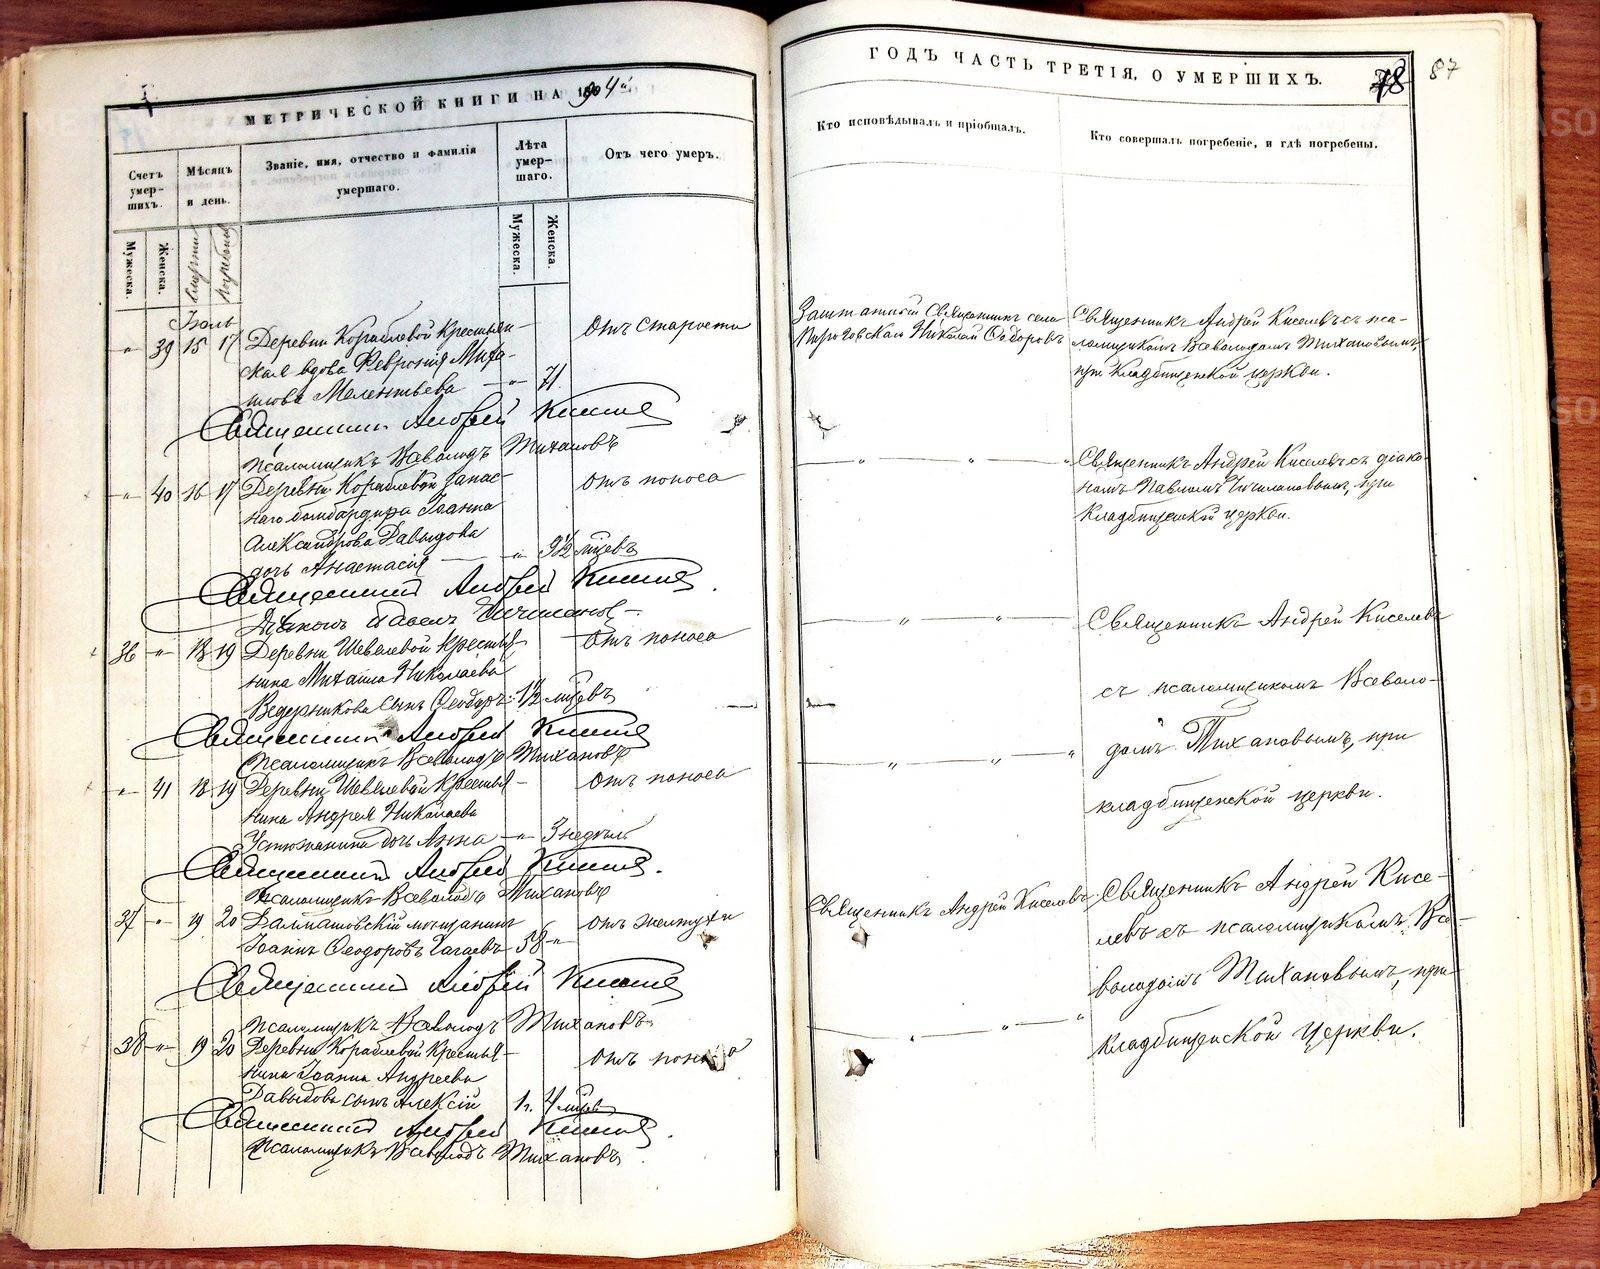 МЕТРИЧЕСКОЙ КНИГИ НА 1904й
Счетъ умер-шихъ.
Мѣсяцъ и день.
Званіе, имя, отчество и фамилія умершаго.
Лѣта умер-шаго.
Отъ чего умеръ.
Мужеска.
Женска.
смерти
погребенія
Мужеска.
Женска.
Іюль
„ 39 15 17 Деревни Кораблевой Крестьян-
ская вдова Феврония Миха-
илова Мелентьева — „ 71
отъ старости
Священникъ Андрей Киселев
псаломщикъ Всеволодъ Тихановъ
„ 40 16 17 Деревни Кораблевой запас-
наго бомбардира Іоанна
Александрова Давыдова
дочь Анастасія — „ 9½ мцевъ
отъ поноса
Священникъ Андрей Киселев
Діаконъ Павелъ
36 „ 18 19 Деревни Шевелевой Крестья-
нина Михаила Николаева
Ведерникова сынъ Ѳеодоръ 1½ мцевъ
отъ поноса
Священникъ Андрей Киселев
Псаломщикъ Всеволодъ Тихановъ
„ 41 18 19 Деревни Шевелевой Крестья-
нина Андрея Николаева
Устюжанина дочь Анна — „ 3 недѣль
отъ поноса
Священникъ Андрей Киселев.
Псаломщикъ Всеволодъ Тихановъ
37 „ 19 20 Далматовскій мѣщанинъ
Іоаннъ Ѳеодоровъ 58 „
отъ желтухи
Священникъ Андрей Киселев
псаломщикъ Всеволодъ Тихановъ
38 „ 19 20 Деревни Кораблевой Крестья-
нина Іоанна Андреева
Давыдова сынъ Алексій 1г. 4 мцев
отъ поноса
Священникъ Андрей Киселев.
Псаломщикъ Всеволодъ Тихановъ.
ГОДЪ ЧАСТЬ ТРЕТІЯ, О УМЕРШИХЪ.
78
87
Кто исповѣдывалъ и пріобщалъ.
Кто совершалъ погребеніе, и гдѣ погребены.
Заштатный Священникъ села
Николай Ѳедоровъ
Священникъ Андрей Киселевъ съ пса-
ломщикомъ Всеволодомъ Тихановымъ,
при кладбищенской церкви.
„ „ „
Священникъ Андрей Киселевъ съ діако-
номъ Павломъ при
кладбищенской церкви.
„ „
Священникъ Андрей Киселевъ
съ псаломщикомъ Всеволо-
„ „ „
домъ Тихановымъ, при
кладбищенской церкви.
Священникъ Андрей Киселевъ
Священникъ Андрей Кисе-
левъ съ псаломщикомъ Все-
володомъ Тихановымъ, при
„ „ „
кладбищенской церкви.